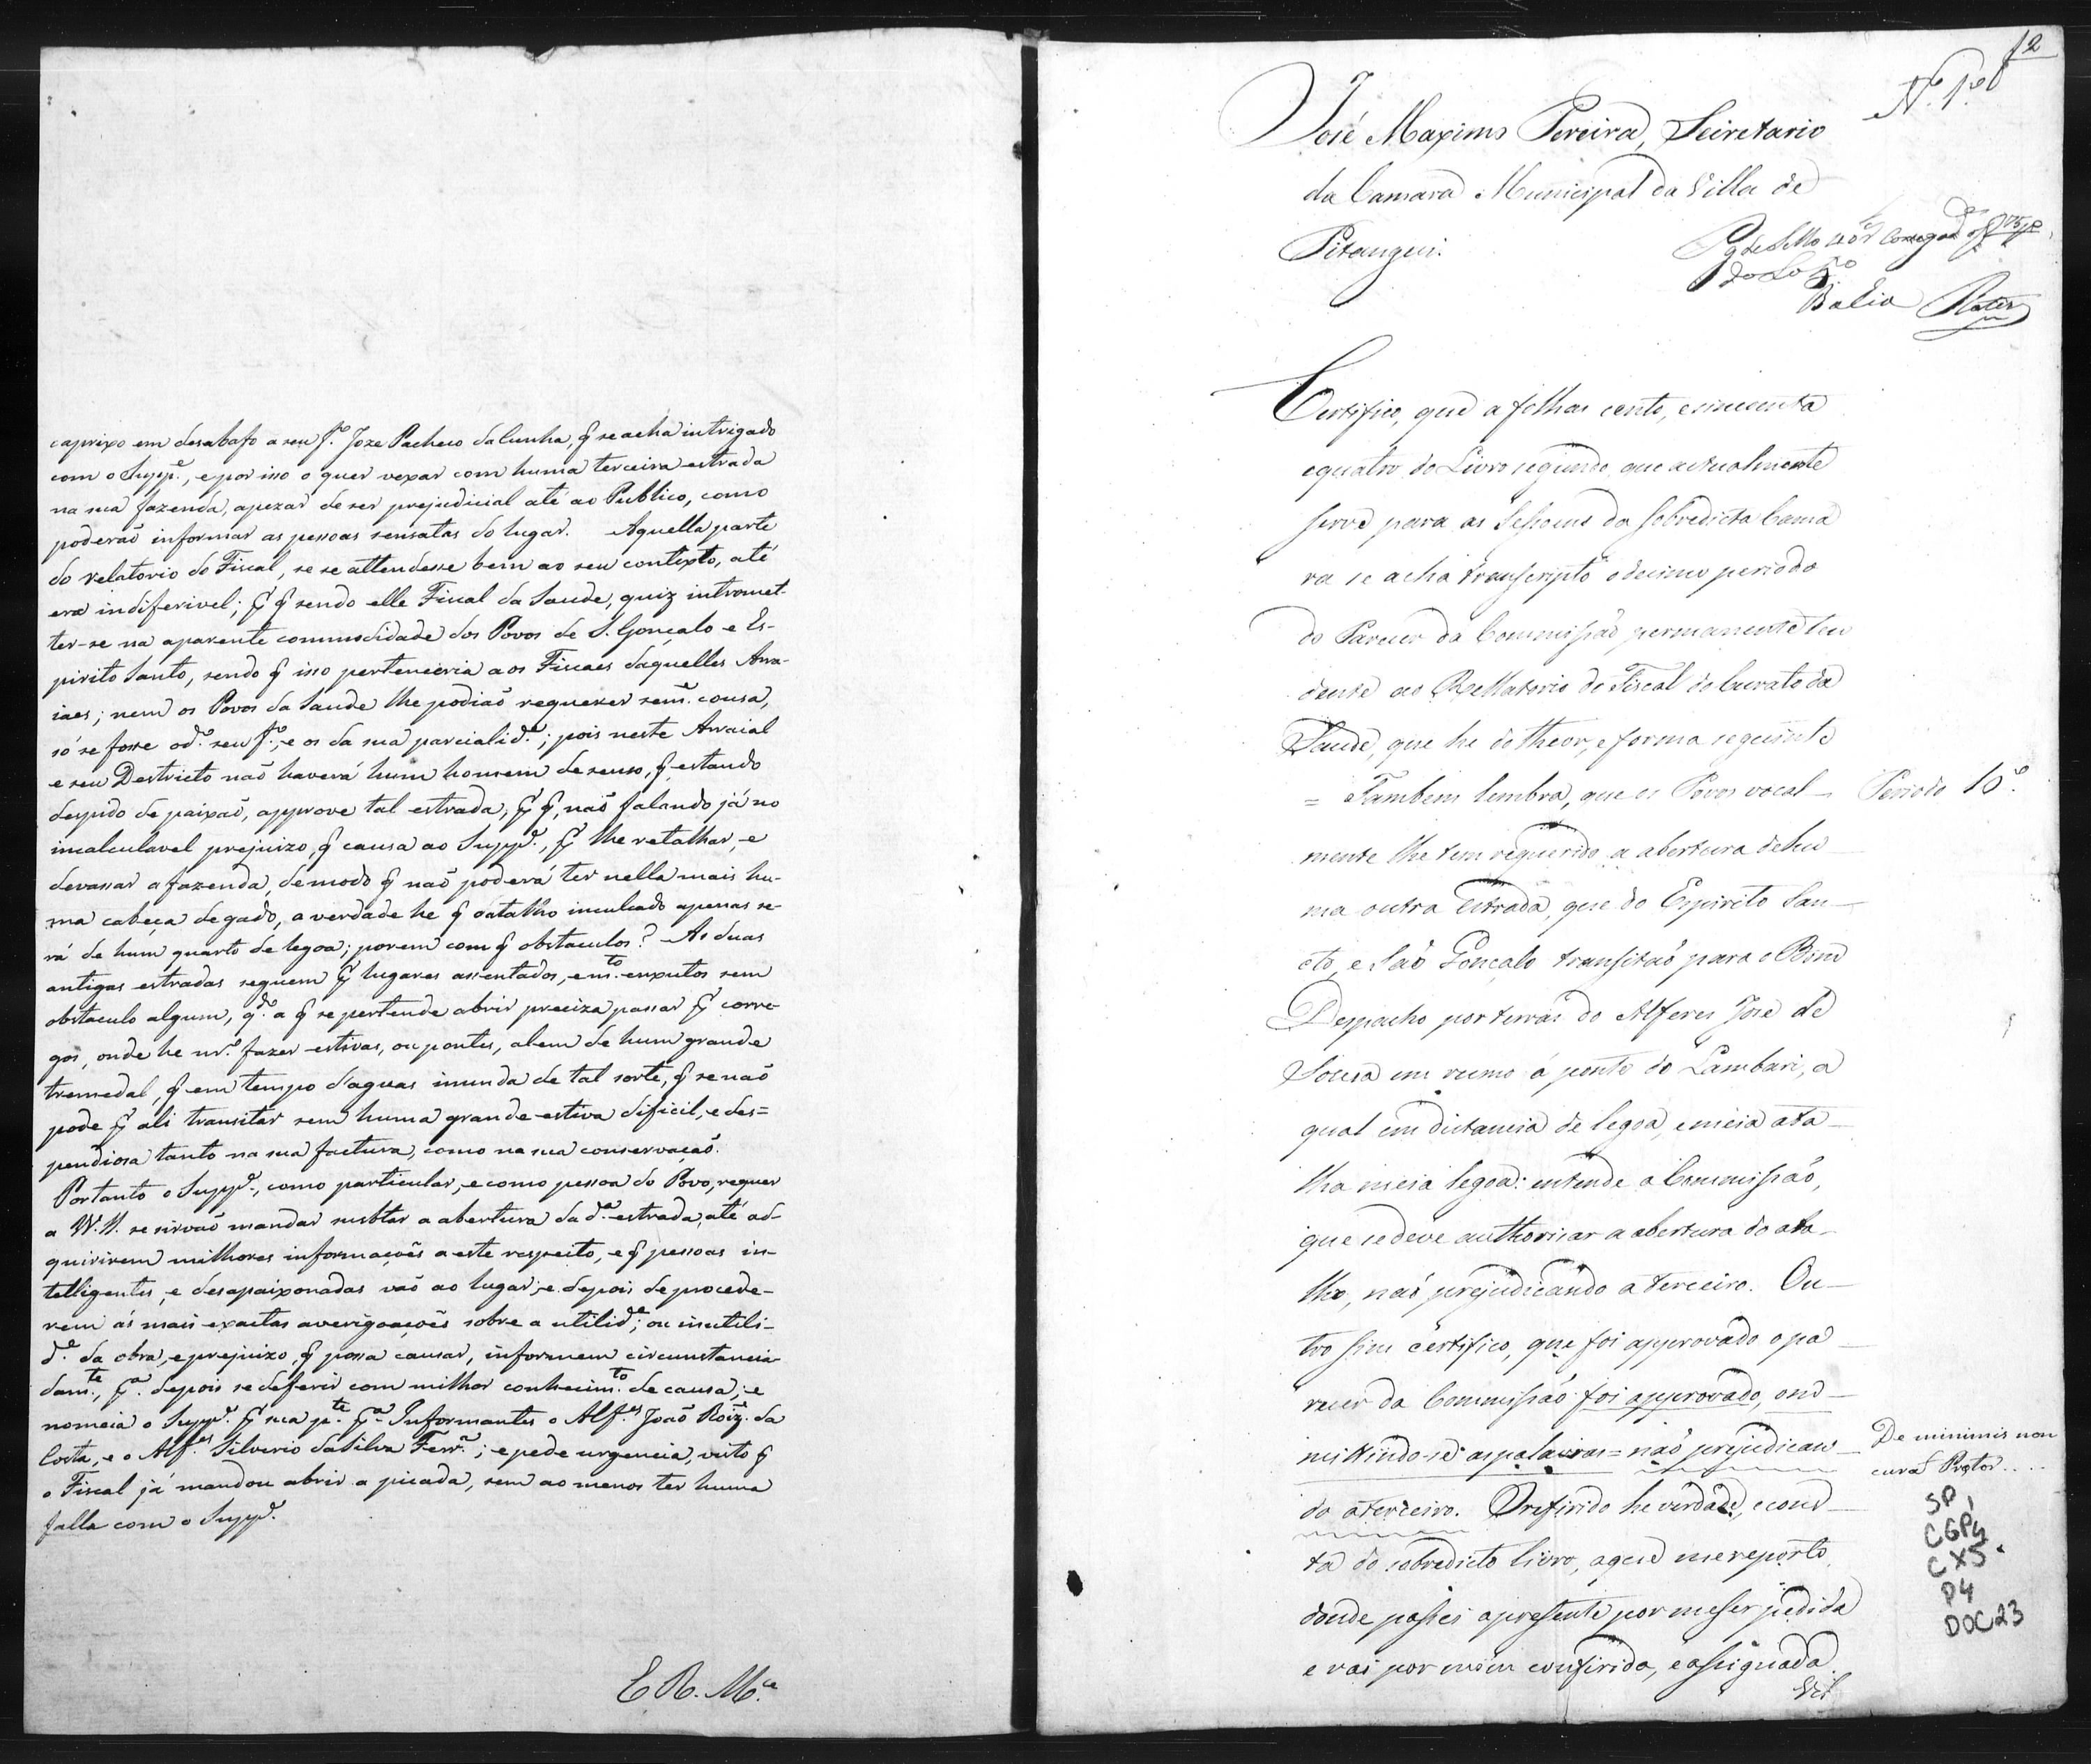 caprixo em desabafo a seu fo. Joze Pacheco da Cunha, q̃ se acha intrigado
com o Suppe., e por isso o quer vexar com huma terceira estrada
na sua fazenda, apezar de ser prejudicial até ao Publico, como
poderaõ informar as pessoas sensatas do lugar. Aquella parte
do relatorio do Fiscal, se se attendesse bem ao seu contexto, até
era indiferivel; p̃ q̃ sendo elle Fiscal da Saude, quiz intromet-
ter-se na aparente commodidade dos Povos de S. Gonçalo e Es-
pirito Santo, sendo q̃ isso pertenceria aos Fiscaes daquelles Arra-
iaes; nem os Povos da Saude lhe podiaõ requerer seme. cousa,
só se fosse o do. seu fo., e os da sua parcialide.; pois neste Arraial
e seu Destricto naõ haverá hum homem de senso, q̃ estando
despido de paixaõ, approve tal estrada, p̃ q̃, naõ falando já no
incalculavel prejuizo, q̃ causa ao Suppe., p̃ lhe retalhar, e
devassar a fazenda, de modo q̃ naõ poderá ter nella mais hu-
ma cabeça de gado, a verdade he q̃ o atalho inculcado apenas se-
rá de hum quarto de legoa; porem com q̃ obstaculos? As duas
antigas estradas seguem p̃ lugares assentados, e mto. enxutos sem
obstaculo algum, qdo. a q̃ se pertende abrir preciza passar p̃ corre-
gos, onde he nro. fazer estivas, ou pontes, alem de hum grande
tremedal, q̃ em tempo d'aguas inunda de tal sorte, q̃ se naõ
pode p̃ ali transitar sem huma grande estiva dificil, e des=
pendiosa tanto na sua factura, como na sua conservaçaõ.
Portanto o Suppe., como particular, e como pessoa do Povo, requer
a V.V.S. se sirvaõ mandar sustar a abertura da da. estrada, até ad-
quirirem milhores informaçoẽs a este respeito, e q̃ pessoas in-
telligentes, e desapaixonadas vaõ ao lugar, e depois de procede-
rem ás mais exactas averigoaçoẽs sobre a utilide., ou inutili-
de. da obra, e prejuizo, q̃ possa causar, informem circumstancia-
damte., pa. depois se deferir com milhor conhecimto. de causa; e
nomeia o Suppe. p̃ sua pte. pa. Informantes o Alfes. Joaõ Roiz. da
Costa, e o Alfes. Silverio da Silva Ferra.; e pede urgencia, visto q̃
o Fiscal já mandou abrir a picada, sem ao menos ter huma
falla com o Suppe.
E R. Mce.
12
No. 1o.
José Maximo Pereira, Secretario
da Camara Municipal da Villa de
Pitangui.
Certifico, que a folhas cento, e sincoenta
e quatro do Livro segundo, que actualmente
serve para as Sessoens da sobredicta Cama
ra se acha transcripto o decimo periodo
do Parecer da Commissaõ permanente ten
dente ao Rellatorio do Fiscal do Curato da
Saude, que he do theor, e forma seguinte
= Tambem lembra, que os Povos vocal-
Periodo 10o.
mente lhe tem requerido a abertura de hu-
ma outra Estrada, que do Espirito San-
cto, e Saõ Gonçalo transitaõ para o Bom
Despacho por terras do Alferes José de
Sousa em rumo á ponte do Lambari, a
qual em distancia de legoa, e meia ata-
lha meia legoa: entende a Commissaõ,
que se deve authorisar a abertura do ata-
lho, naõ prejudicando a terceiro. Ou-
tro sim certifico, que foi approvado o pa-
recer da Commissaõ foi approvado, omi-
mittindo-se as palavras = naõ prejudican-
De minimis non
curat Prætor....
do a terceiro. O refirido he verdade, e cons-
ta do sobredicto livro, a que me reporto,
donde passei a presente por me ser pedida
e vai por mim confirida, e assignada.
SP,
CGP4
CX5.
P4
DOC23